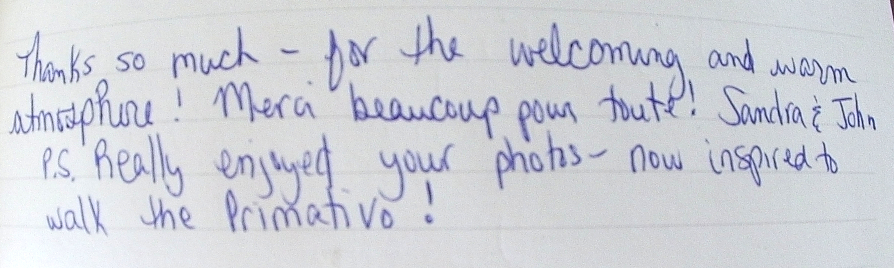 Thanks so much - for the welcoming and warm
atmosphere! Merci beaucoup pour touté! Sandra & John
P.S. Really enjoyed your photos - now inspired to
walk the Primativo!